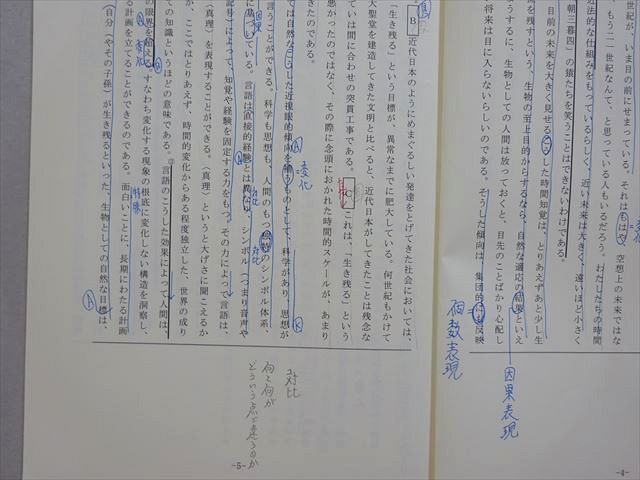 世紀が、いま目の前にせまっている。それはもはや、空想上の未来ではな
もう二一世紀なんて、と思っている人もいるだろう。わたしたちの時間
近法的な仕組みをもっているらしく、近い未来は大きく、遠いほど小さく
朝三暮四」の猿たちを笑うことはできないわけである。
目前の未来を大きく見せるこうした時間知覚は、とりあえずあと少し生
を残すという、生物の至上目的からするなら、自然な適応の結果といえ
うするに、生物としての人間は放っておくと、目先のことばかり心配し
将来は目に入らないらしいのである。そうした傾向は、集団的にも反映
個数表現
因果表現
-4-
B 近代日本のようにめまぐるしい発達をとげてきた社会においては、
「生き残る」という目標が、異常なまでに肥大している。何世紀もかけて
大聖堂を建造してきた文明と比べると、近代日本がしてきたことは残念な
ていは間に合わせの突貫工事である。 C これは、「生き残る」という
悪かったのではなく、その際に念頭におかれた時間的スケールが、あまり
きたのである。
ては自然なこうした近視眼的傾向を補うものとして、科学があり、思想が
言うことができる。科学も思想も、人間のもつ独特のシンボル体系、
に基づいている。言語は直接的経験とは異なり、シンボル(つまり音声や
記号)によって、知覚や経験を固定する力をもつ。その力によって言語は、
〈真理〉を表現することができる。〈真理〉というと大げさに聞こえるか
が、ここではとりあえず、時間的変化からある程度独立した、世界の成り
ての知識というほどの意味である。言語のこうした効果によって人間は、
の限界を超える。すなわち変化する現象の根底に変化しない構造を洞察し、
る計画を立てることができるのである。面白いことに、長期にわたる計画
(自分(やその子孫)が生き残るといった、生物としての自然な目標は、
対比
何と何が
どういう点で違うのか
-5-